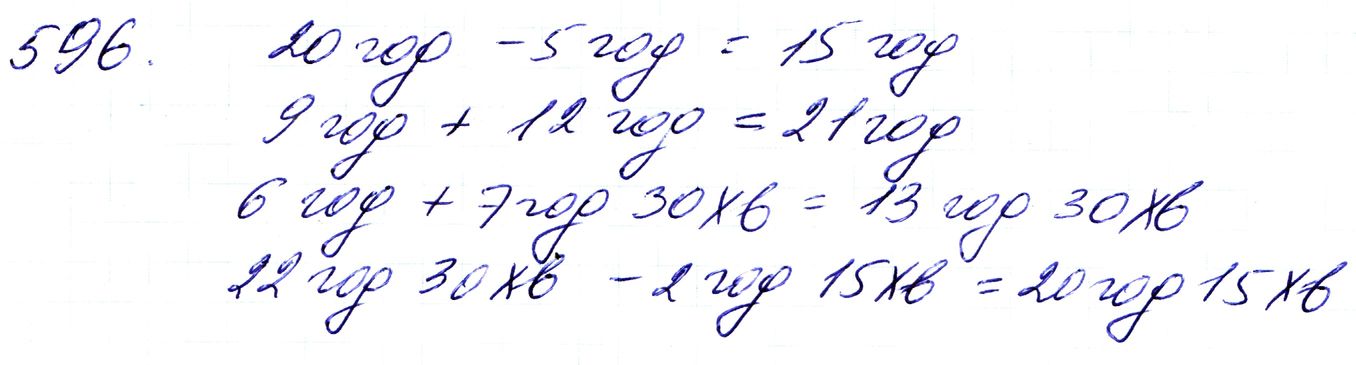 596. 20 год - 5 год = 15 год
9 год + 12 год = 21 год
6 год + 7 год 30 хв = 13 год 30 хв
22 год 30 хв - 2 год 15 хв = 20 год 15 хв